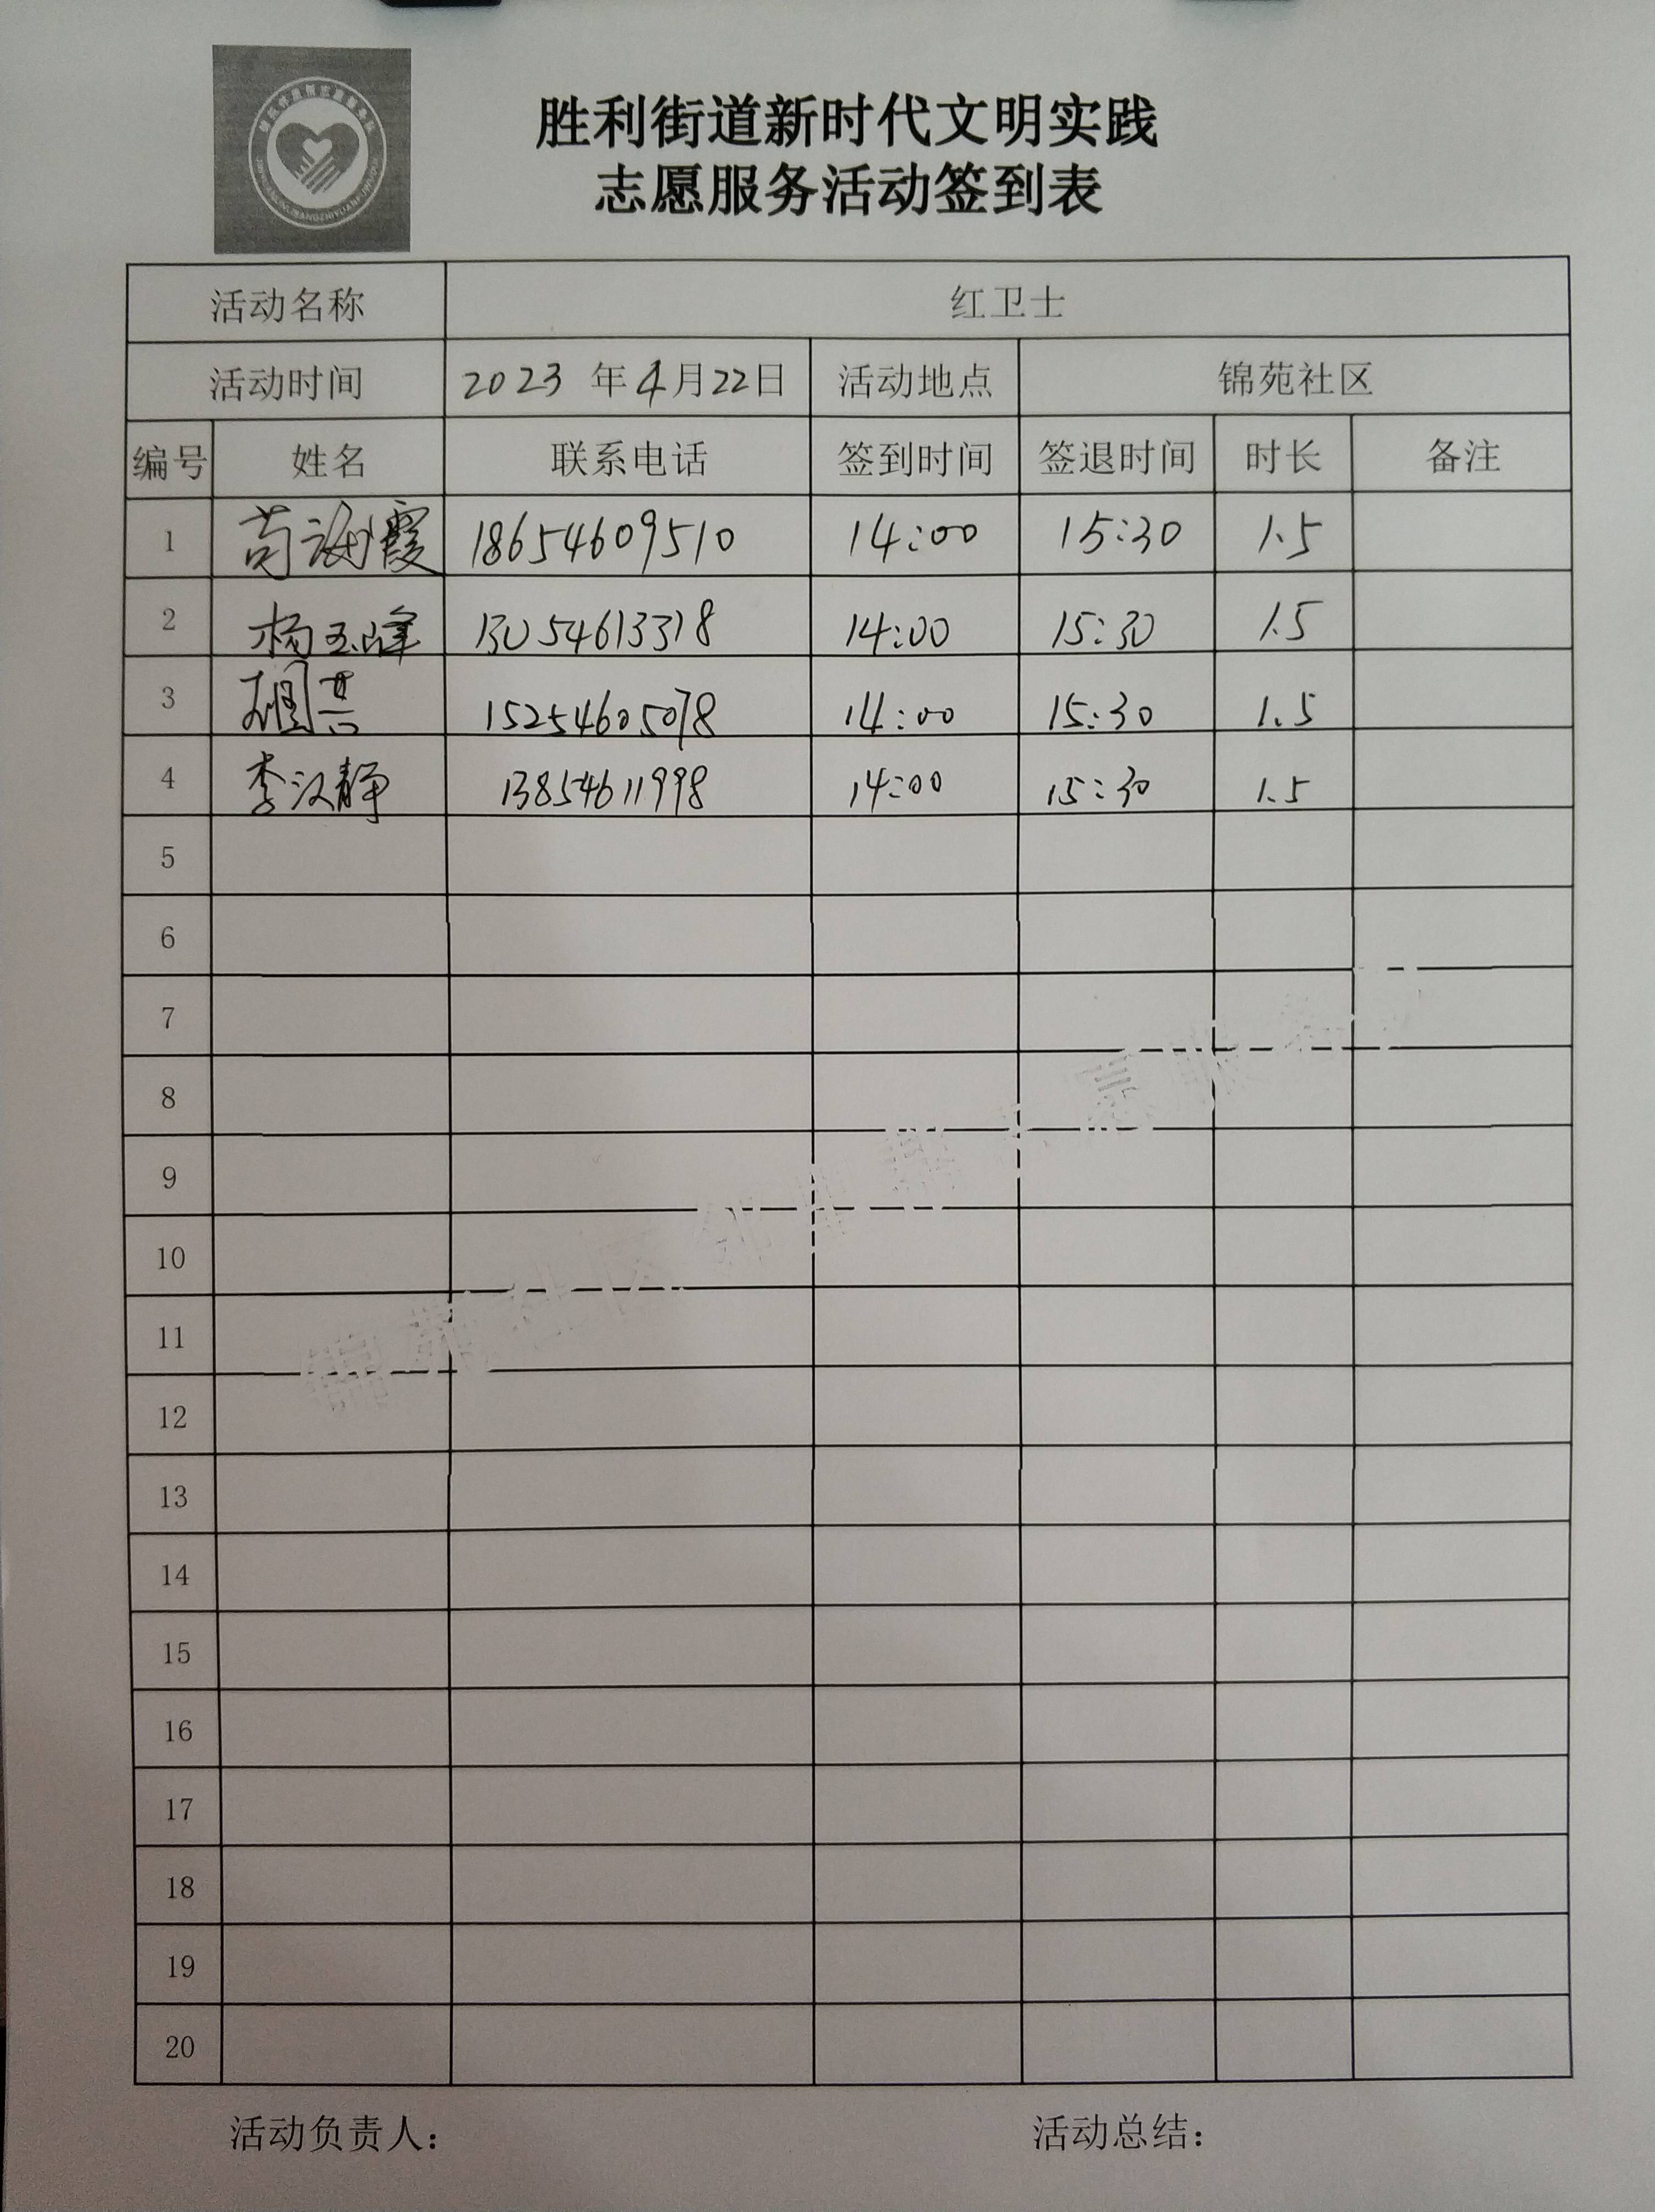 胜利街道新时代文明实践
志愿服务活动签到表
活动名称 红卫士
活动时间 2023 年 4月22日 活动地点 锦苑社区
编号 姓名 联系电话 签到时间 签退时间 时长 备注
1 苟海霞 18654609510 14:00 15:30 1.5
2 杨玉峰 13054613318 14:00 15:30 1.5
3 15254605078 14:00 15:30 1.5
4 李汉静 13854611998 14:00 15:30 1.5
5
6
7
8
9
10
11
12
13
14
15
16
17
18
19
20
活动负责人: 活动总结: